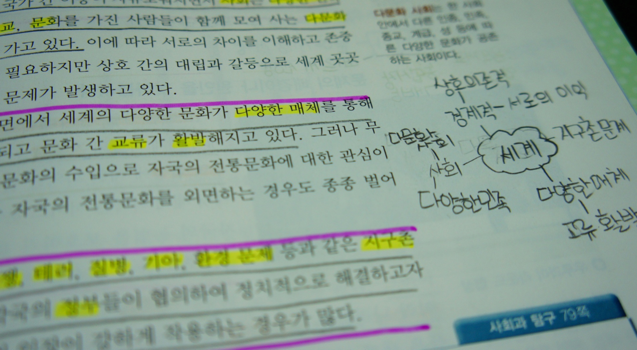 교, 문화를 가진 사람들이 함께 모여 사는 다문화
가고 있다. 이에 따라 서로의 차이를 이해하고 존중
필요하지만 상호 간의 대립과 갈등으로 세계 곳곳
문제가 발생하고 있다.
면에서 세계의 다양한 문화가 다양한 매체를 통해
되고 문화 간 교류가 활발해지고 있다. 그러나 무
문화의 수입으로 자국의 전통문화에 대한 관심이
자국의 전통문화를 외면하는 경우도 종종 벌어
테러, 질병, 기아, 환경 문제 등과 같은 지구촌
각국의 정부들이 협의하여 정치적으로 해결하고자
강하게 작용하는 경우가 많다.
다문화 사회는 한 사회
안에서 다른 인종, 민족,
종교, 계급, 성 등에 따
른 다양한 문화가 공존
하는 사회이다.
상호의존적
경제적 - 서로의 이익
다문화
사회
다양한민족
세계
지구촌문제
다양한매체
교류 활발
사회과 탐구 79쪽